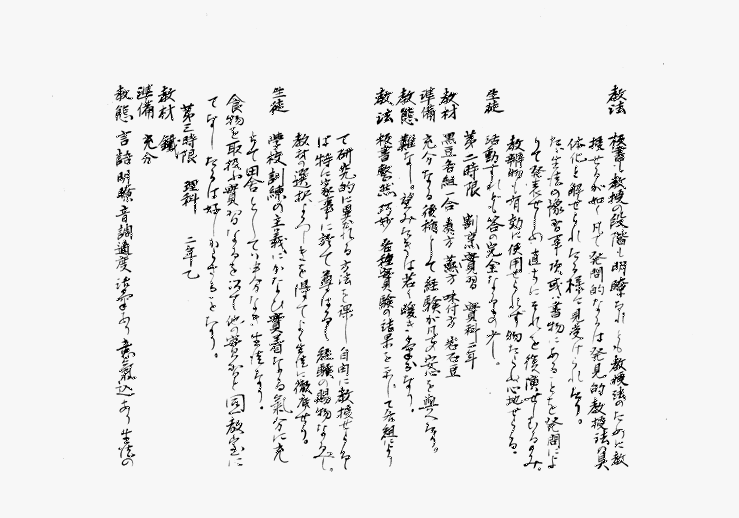 教法 板書し教授の段階も明瞭なれども教授法のために教
授せらるゝが如し凡て発問的なるは発見的教授法の真
体化と解せられたる様に見受けられたり。
たゞ生徒の予習事項或は書物にあることを発問によ
りて発表せしめ直ちにそれを復演せしむるのみ。
教材物も有効に使用せられず物たらぬ心地せらる。
生徒 活動すれども答の完全なるもの少し。
第二時限 割烹実習 実科二年
教材 黒豆各組一合 煮方 蒸方 味付方 岩石豆
準備 充分なる後補として経験がけ安心を与へたり。
教態 難なし。望みたきは若々暖き気なり。
教法 板書整然巧妙 各種実験の結果を示して各組により
て研究的に異れる方法を課し自由に教授せられし
は特に家事に於て尊ばるべし経験の賜物なるべし。
教材の選択よろしきを得てよく生徒に徹底せり。
生徒 学校訓練の主義にかなひ実着なる気分に充
ちて田舎としては出分なき生徒なり。
食物を取扱ふ実習なるを以て他の実習と同一教室に
てなしたるは好しからざることなり。
第三時限 理科 二年乙
教材 鏡
準備 充分
教態 言語明瞭音調適度 活気あり 意気込あり 生徒の